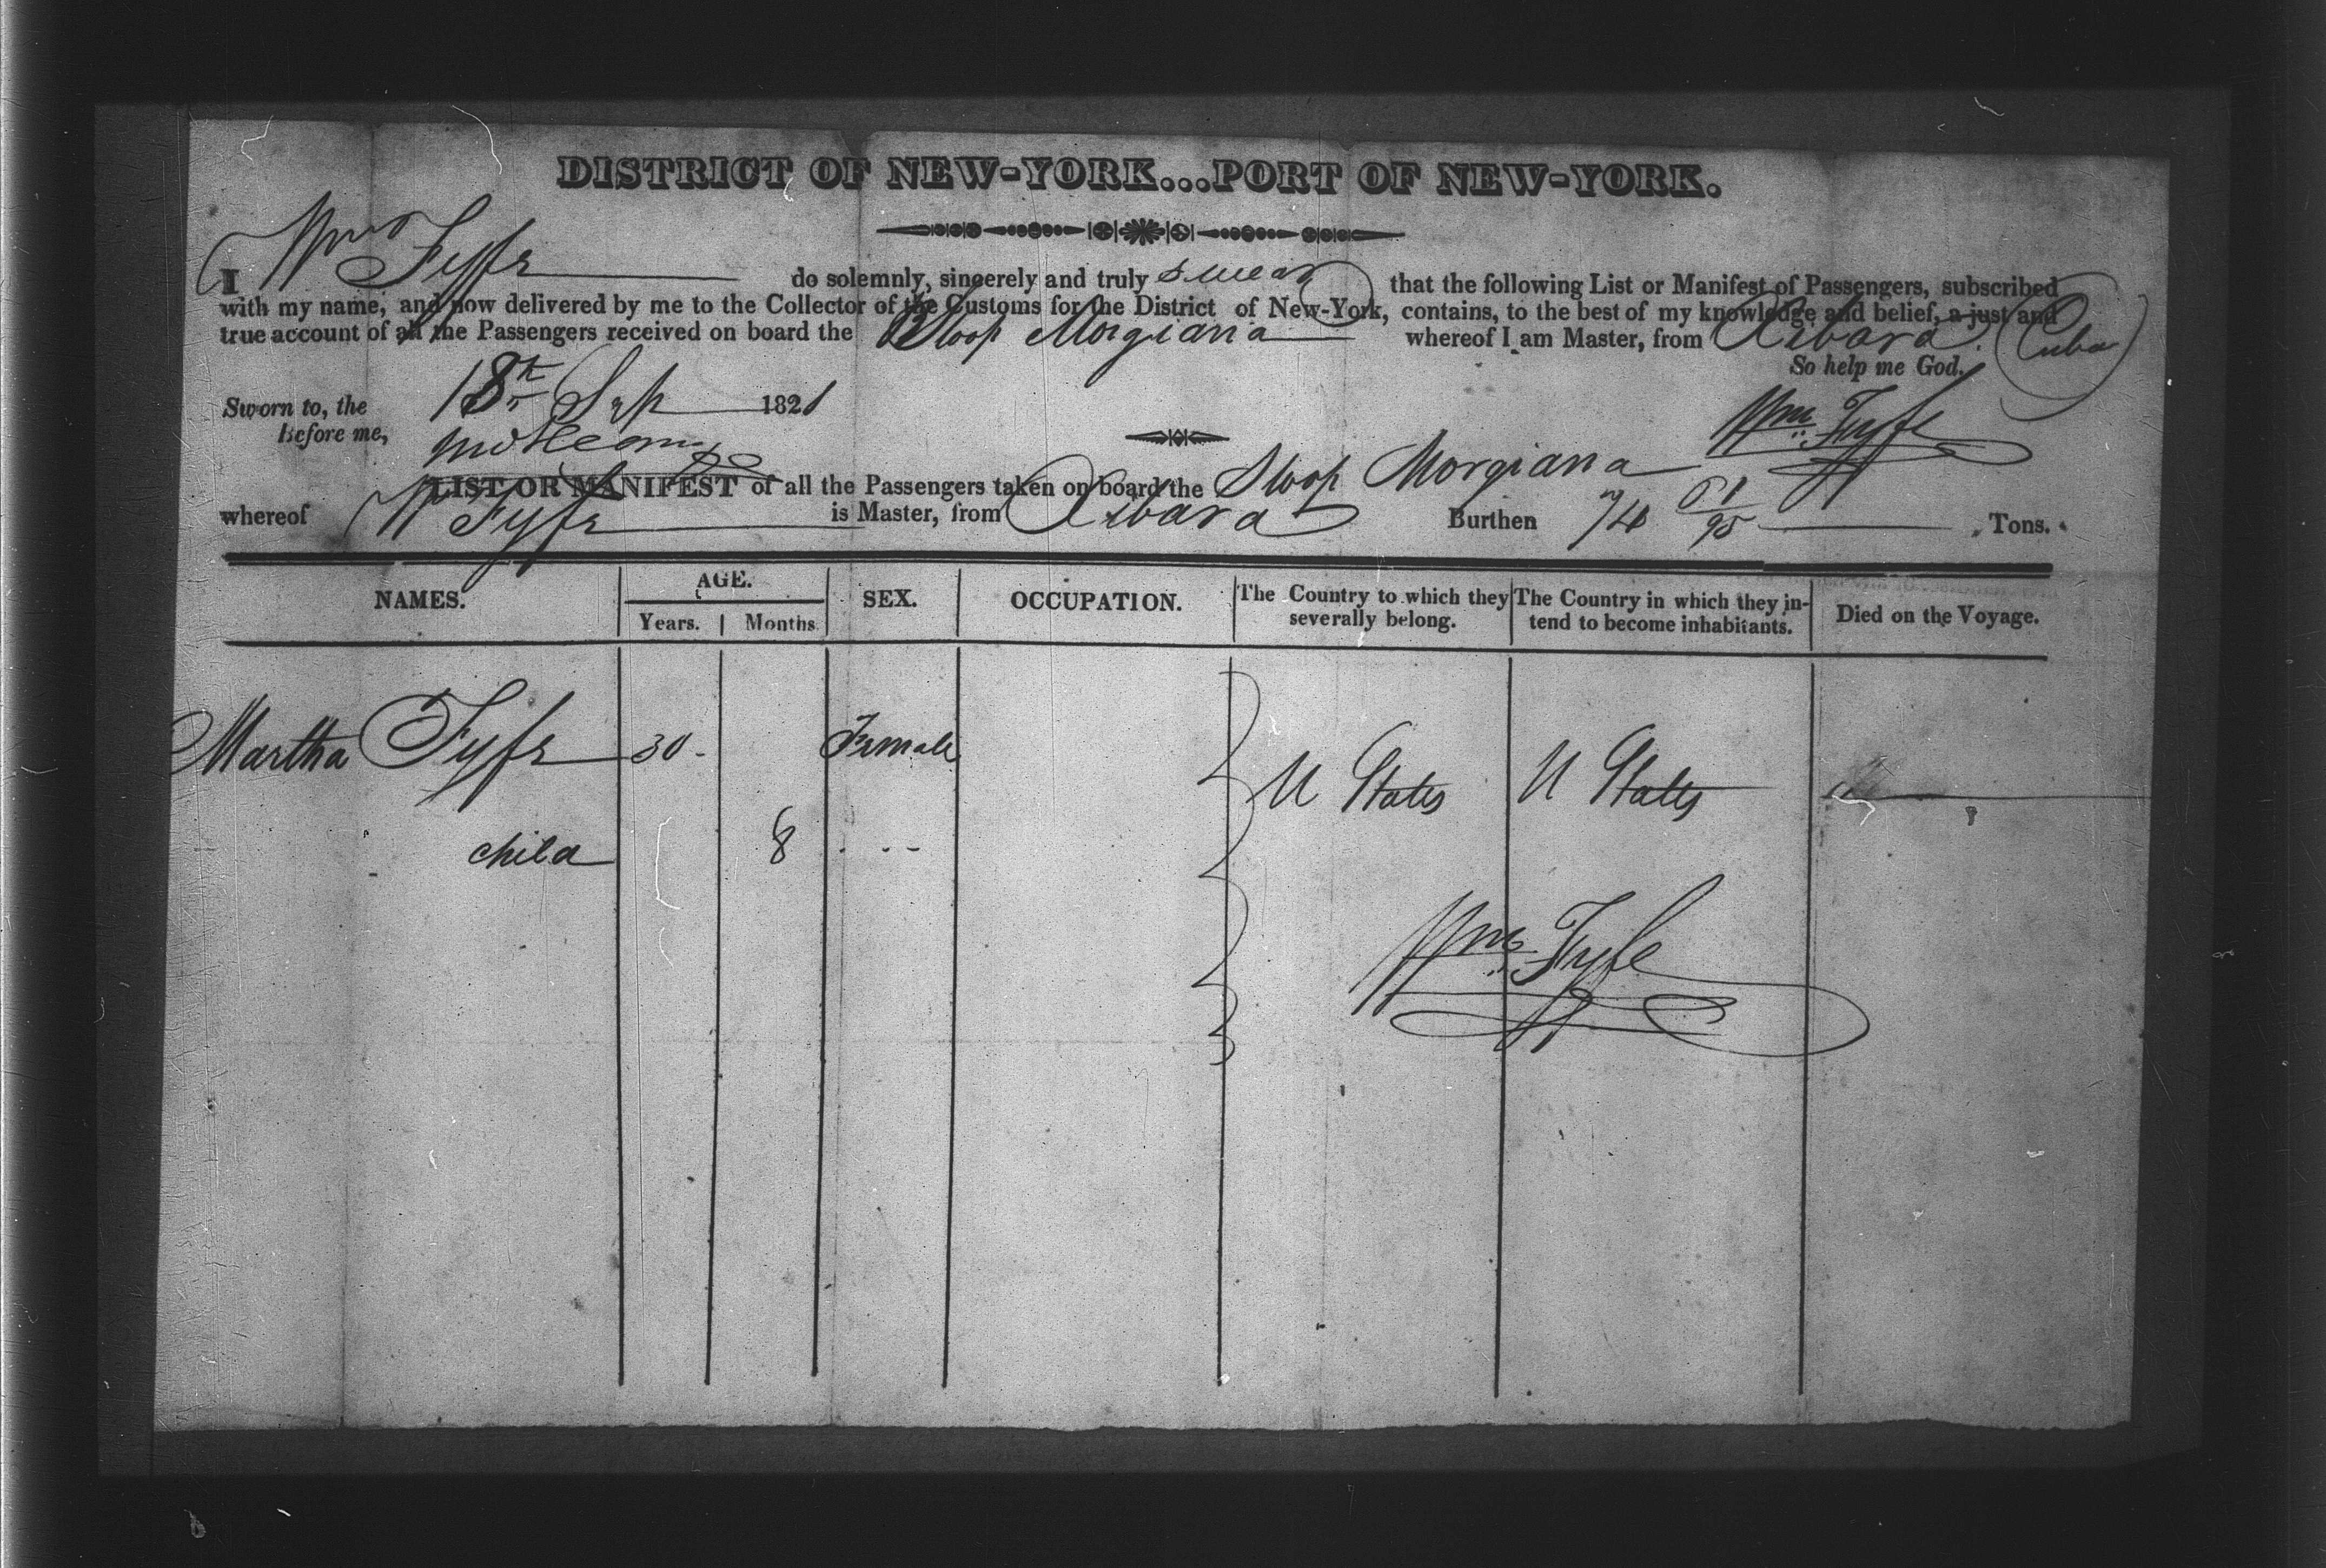 DISTRICT OF NEW-YORK...PORT OF NEW-YORK.
I Wm Fyfe do solemnly, sincerely and truly swear that the following List or Manifest of Passengers, subscribed
with my name, and now delivered by me to the Collector of the Customs for the District of New-York, contains, to the best of my knowledge and belief, a just and
true account of all the Passengers received on board the Sloop Morgiana whereof I am Master, from Xibara (Cuba)
So help me God.
Sworn to, the 18th Sep 1821
Before me,
Wm Fyfe
LIST OR MANIFEST of all the Passengers taken on board the Sloop Morgiana
whereof Wm Fyfe is Master, from Xibara Burthen 74 61/95 Tons.
NAMES. AGE. Years. Months. SEX. OCCUPATION. The Country to which they severally belong. The Country in which they intend to become inhabitants. Died on the Voyage.
Martha Fyfe 30 - Female U States U States
child 8 - - -
Wm Fyfe